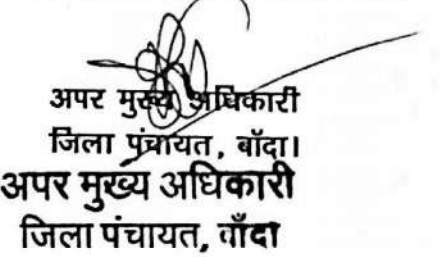 अपर मुख्य अधिकारी
जिला पंचायत, बॉदा।
अपर मुख्य अधिकारी
जिला पंचायत, बाँदा